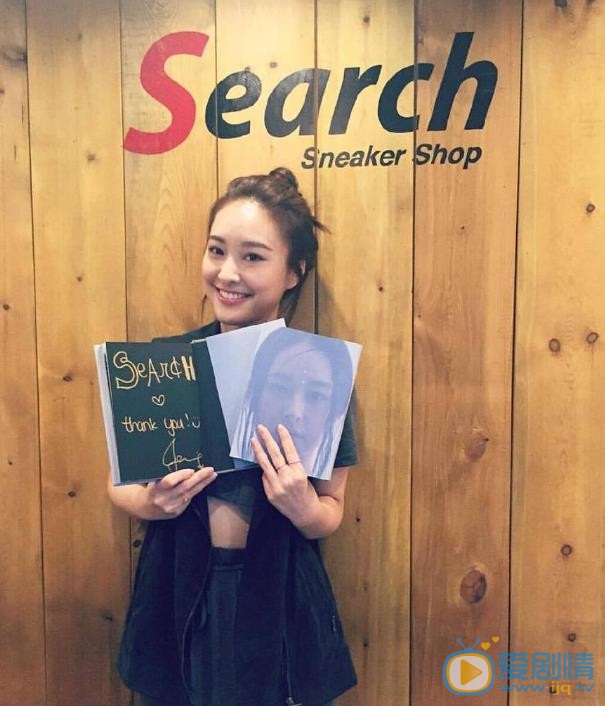 Search
Sneaker Shop
SeArcH
thank you!
爱剧情
www.ijq.tv